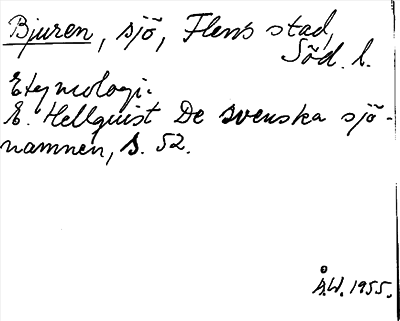 Bjuren, sjö, Flens stad,
Söd. l.
Etymologi.
E. Hellquist De svenska sjö-
namnen, s. 52.
Å.W. 1955.